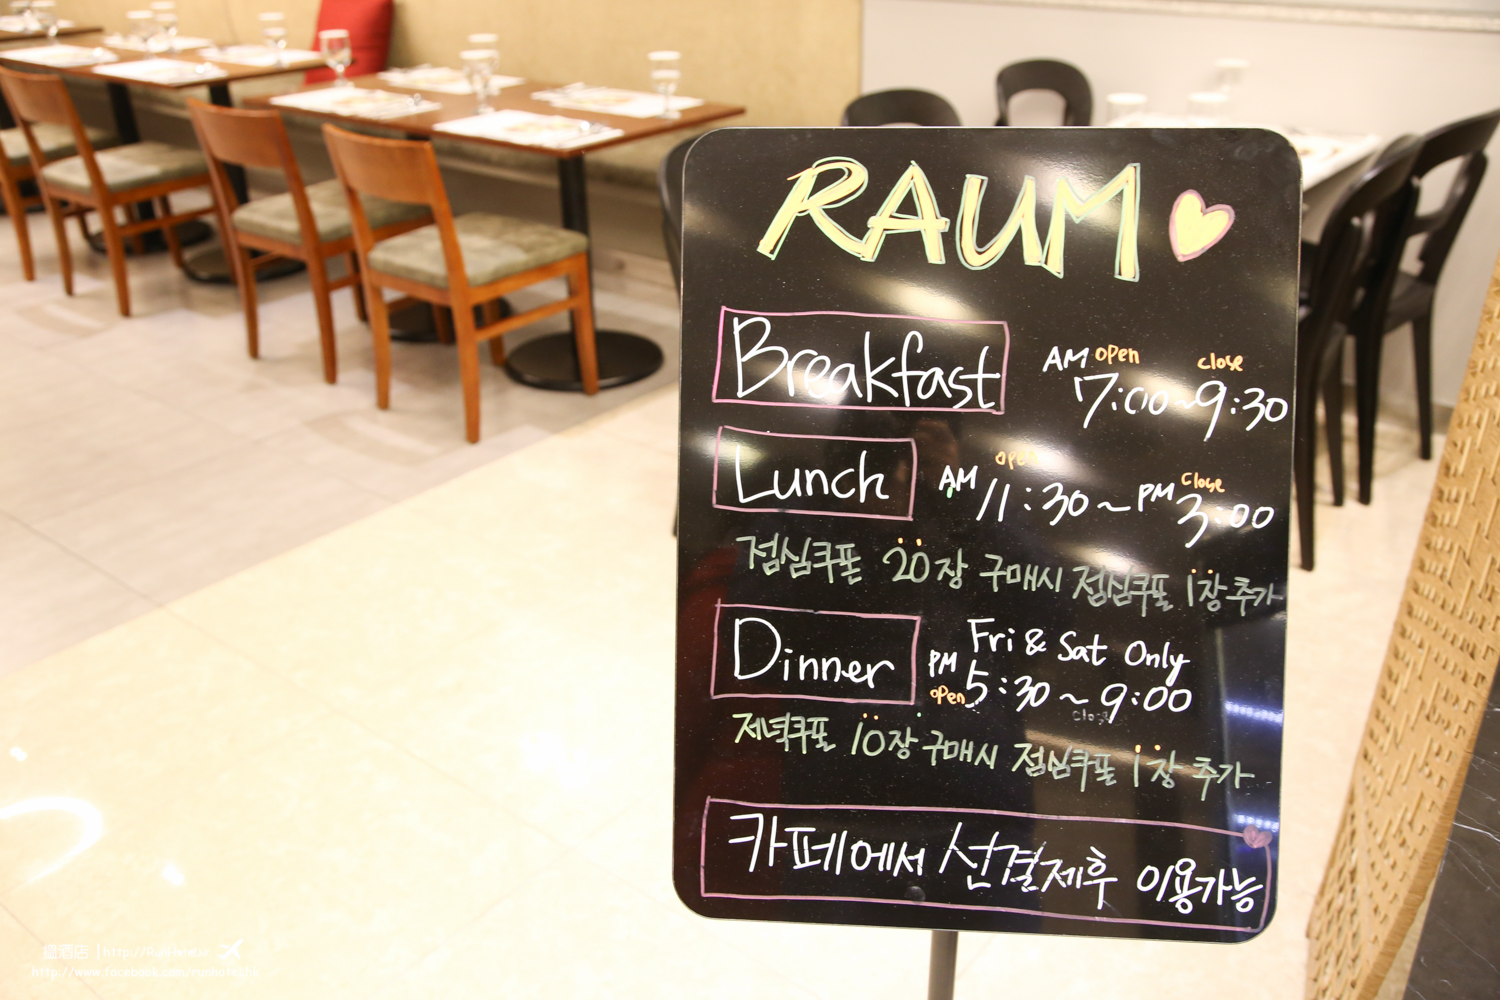 RAUM
Breakfast AM open close
7:00~9:30
Lunch AM open PM close
11:30~3:00
점심쿠폰 20장 구매시 점심쿠폰 1장 추가
Dinner Fri & Sat Only
PM open 5:30~9:00
close
저녁쿠폰 10장 구매시 점심쿠폰 1장 추가
카페에서 선결제후 이용가능